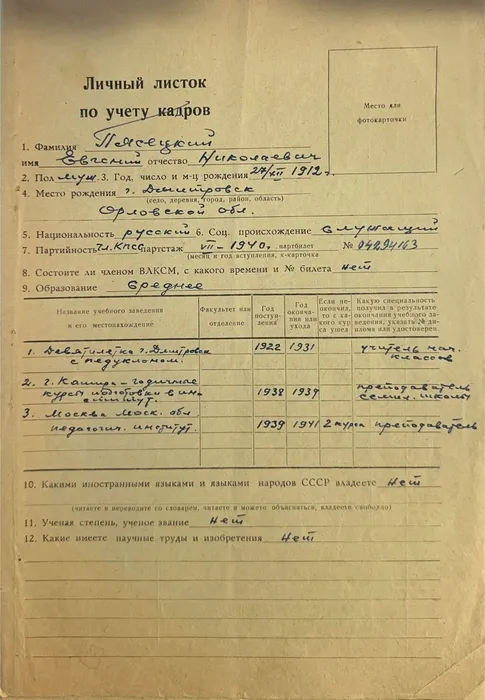 Личный листок
по учету кадров
Место для
фотокарточки
1. Фамилия Пясецкий
имя Евгений отчество Николаевич
2. Пол муж. 3. Год, число и м-ц рождения 27/XII 1912 г.
4. Место рождения г. Дмитровск
(село, деревня, город, район, область)
Орловской обл.
5. Национальность русский 6. Соц. происхождение служащий
7. Партийность Чл. КПСС партстаж VII - 1940 г. партбилет № 04294143
(месяц и год вступления, к-карточка
8. Состоите ли членом ВЛКСМ, с какого времени и № билета нет
9. Образование Среднее
Название учебного заведения и его местонахождение
Факультет или отделение
Год поступления
Год окончания или ухода
Если не окончил, то с какого курса ушел
Какую специальность получил в результате окончания учебного заведения, указать № диплома или удостоверен.
1. Девятилетка г. Дмитровск с педуклоном. 1922 1931 учитель нач. классов
2. г. Кашира - годичные курсы подготовки в институт. 1938 1939 преподаватель семил. школы
3. Москва Моск. обл педагогич. институт. 1939 1941 2 курса преподаватель
10. Какими иностранными языками и языками народов СССР владеете Нет
(читаете и переводите со словарем, читаете и можете объясняться, владеете свободно)
11. Ученая степень, ученое звание Нет
12. Какие имеете научные труды и изобретения Нет